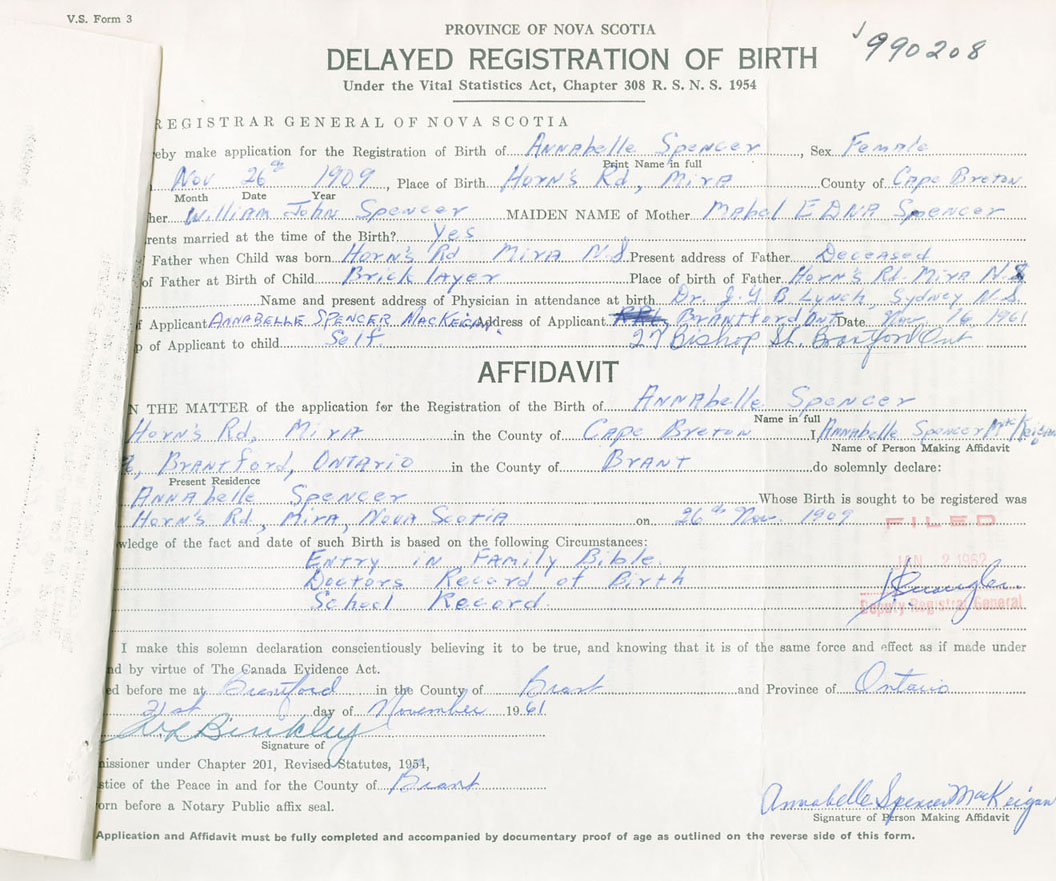 V.S. Form 3
PROVINCE OF NOVA SCOTIA
DELAYED REGISTRATION OF BIRTH
990208
Under the Vital Statistics Act, Chapter 308 R. S. N. S. 1954
REGISTRAR GENERAL OF NOVA SCOTIA
eby make application for the Registration of Birth of Annabelle Spencer, Sex Female
Print Name in full
Nov 26th 1909, Place of Birth Horn's Rd, Mira County of Cape Breton
Month Date Year
her William John Spencer MAIDEN NAME of Mother Mabel EDNA Spencer
rents married at the time of the Birth? Yes
Father when Child was born Horn's Rd Mira N.S. Present address of Father Deceased
of Father at Birth of Child Brick layer Place of birth of Father Horn's Rd. Mira N.S
Name and present address of Physician in attendance at birth Dr. J. Y B Lynch, Sydney N.S.
f Applicant ANNABELLE SPENCER MacKEIGAN Address of Applicant Brantford Ont Date Nov. 16 1961
p of Applicant to child Self. 27 Bishop St. Brantford Ont
AFFIDAVIT
N THE MATTER of the application for the Registration of the Birth of ANNAbelle Spencer
Name in full
Horn's Rd, Mira in the County of Cape Breton I, Annabelle Spencer
Name of Person Making Affidavit
BRANTford, ONTARIO in the County of BRANT do solemnly declare:
Present Residence
ANNAbelle Spencer Whose Birth is sought to be registered was
Horn's Rd, Mira, Nova Scotia on 26th Nov. 1909
FILED
wledge of the fact and date of such Birth is based on the following Circumstances:
Entry in Family Bible.
JAN 2 1962
Doctors Record of Birth
School Record.
Deputy Registrar General
I make this solemn declaration conscientiously believing it to be true, and knowing that it is of the same force and effect as if made under
nd by virtue of The Canada Evidence Act.
ed before me at Brantford in the County of Brant and Province of Ontario
21st day of November 1961
Binkley
Signature of
missioner under Chapter 201, Revised Statutes, 1954,
stice of the Peace in and for the County of Brant
orn before a Notary Public affix seal.
Annabelle Spencer MacKeigan
Signature of Person Making Affidavit
Application and Affidavit must be fully completed and accompanied by documentary proof of age as outlined on the reverse side of this form.